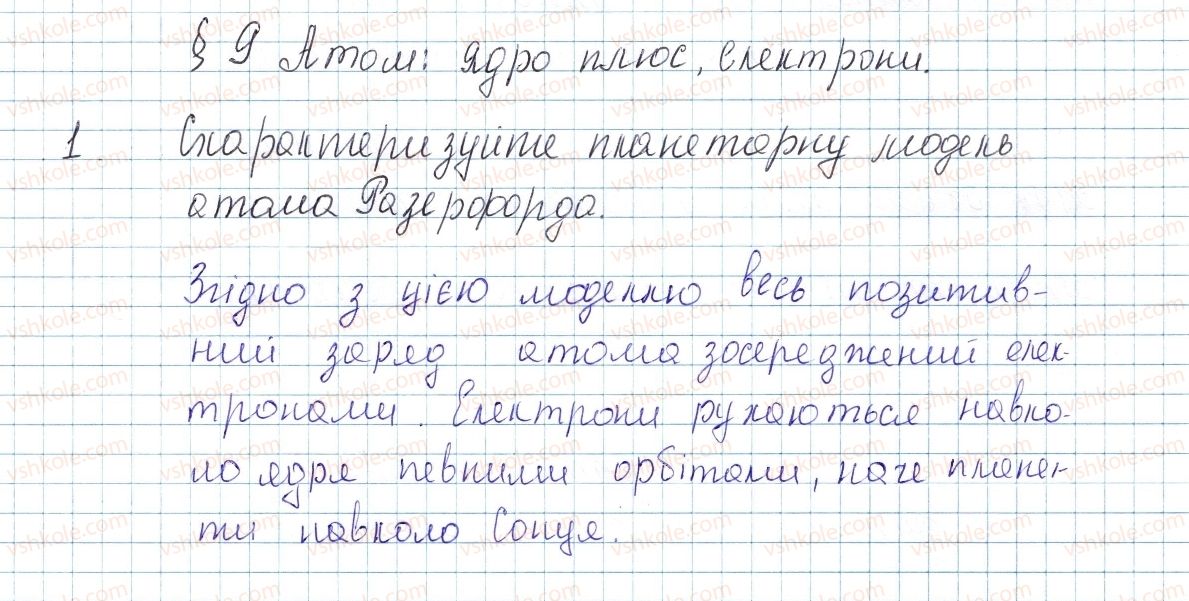 § 9 Атом: ядро плюс, електрони.
1. Схарактеризуйте планетарну модель
атома Разерфорда.
Згідно з цією моделлю весь позитив-
ний заряд атома зосереджений елек-
тронами. Електрони рухаються навко-
ло ядра певними орбітами, наче плане-
ти навколо Сонця.